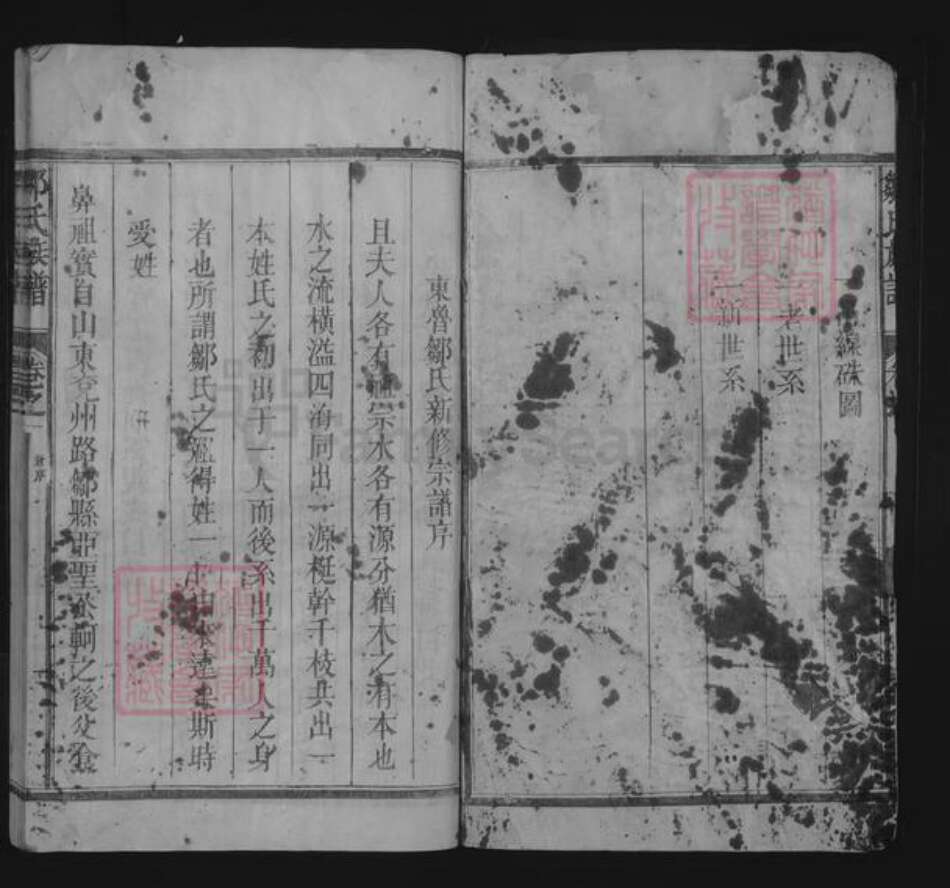 鄒氏族譜
線硃圖
一老世系
一新世系
東魯鄒氏新修宗譜序
且夫人各有祖宗水各有源分猶木之有本也
水之流橫溢四濟同出一源梃幹千枝共出一
本姓氏之初出于一人而後系出千萬人之身
者也所謂鄒氏之得姓一遠矣斯時
受姓
鼻祖實自山東兗州路鄒縣亞聖孟軻之後爻食
鄒氏族譜
卷之